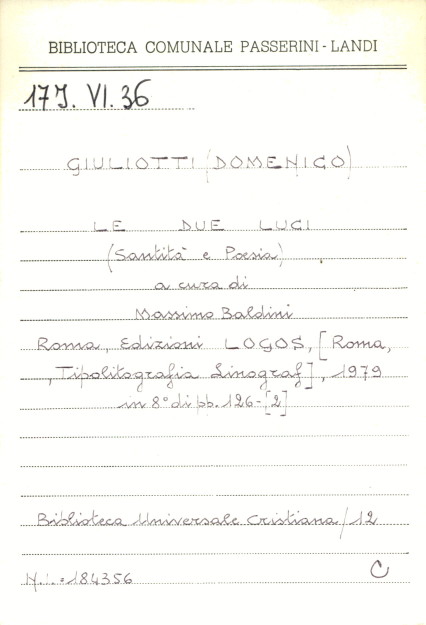 BIBLIOTECA COMUNALE PASSERINI-LANDI
17J. VI. 36
GIULIOTTI (DOMENICO)
LE DUE LUCI
(Santità e Poesia)
a cura di
Massimo Baldini
Roma, Edizioni LOGOS, [Roma,
, Tipolitografia Linograf], 1979
in 8° di pp. 126-[2]
Biblioteca Universale Cristiana/12
N.:. = 184356
C